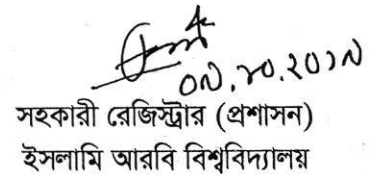 ০৯.১০.২০১৯
সহকারী রেজিস্ট্রার (প্রশাসন)
ইসলামি আরবি বিশ্ববিদ্যালয়